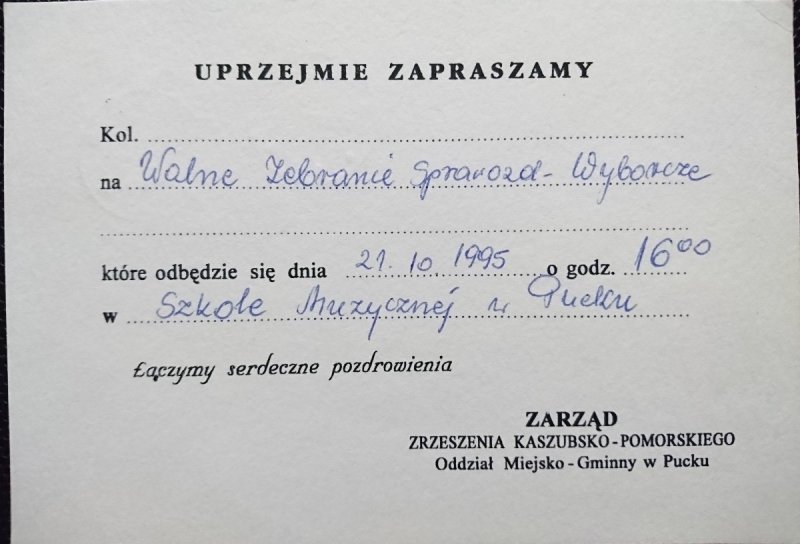 UPRZEJMIE ZAPRASZAMY
Kol.
na Walne Zebranie Sprawozd-Wyborcze
które odbędzie się dnia 21.10 1995 o godz. 16⁰⁰
w Szkole Muzycznej w Pucku
Łączymy serdeczne pozdrowienia
ZARZĄD
ZRZESZENIA KASZUBSKO-POMORSKIEGO
Oddział Miejsko-Gminny w Pucku